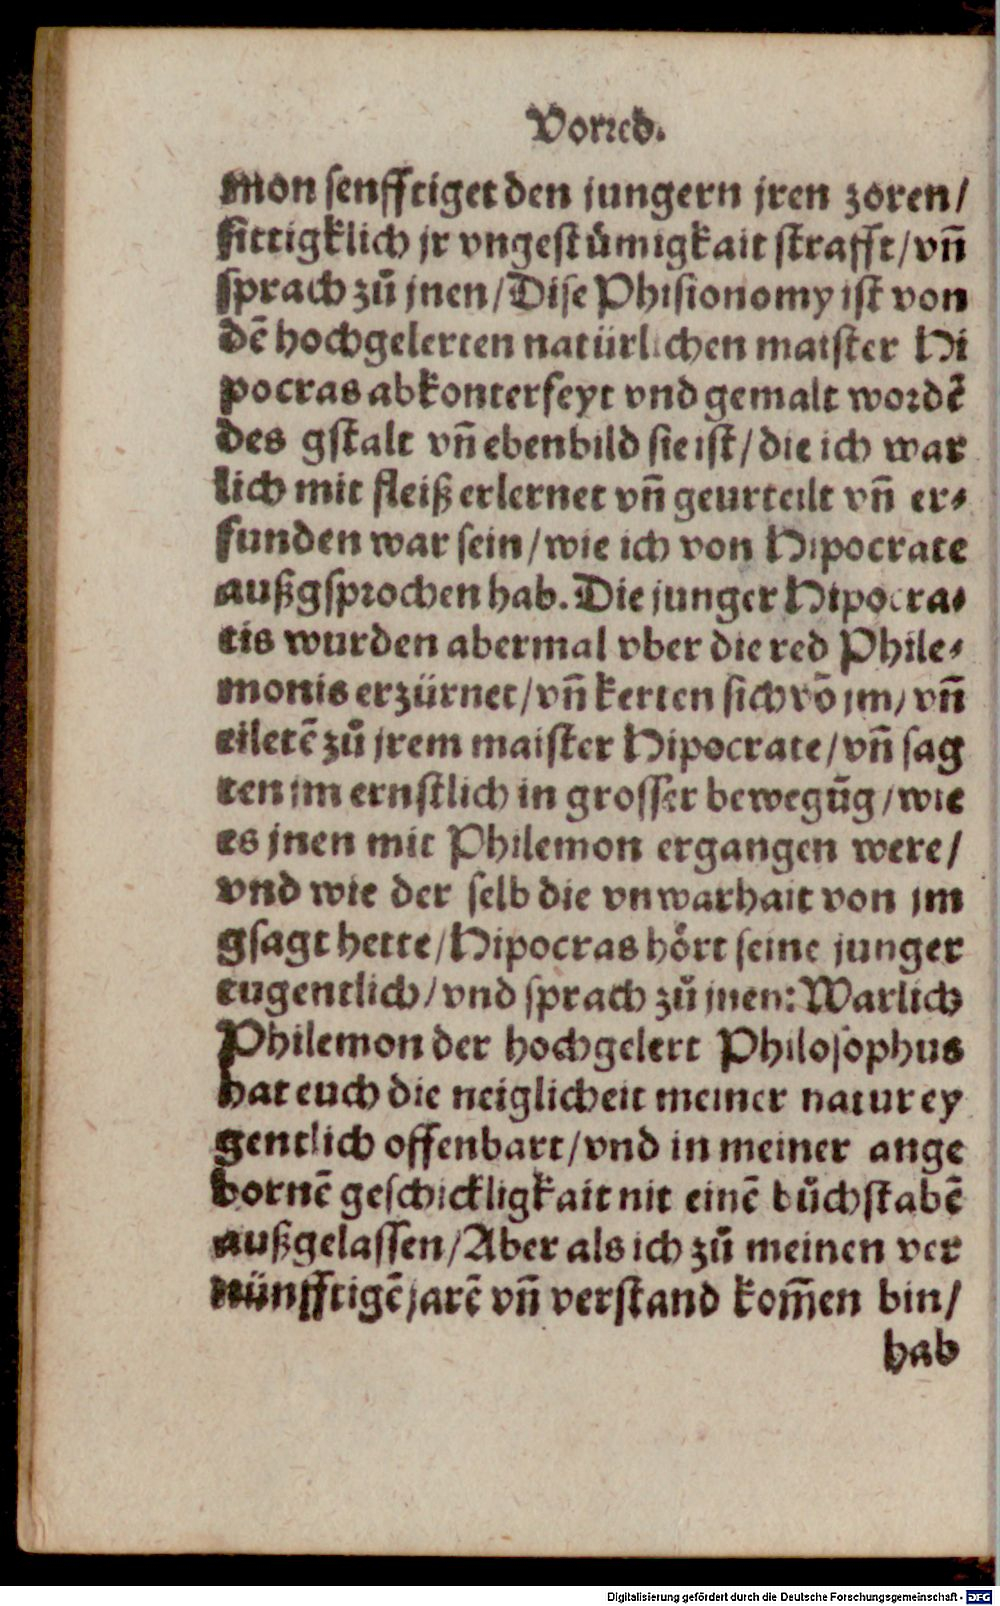 Vorred.
mon senfftiget den jungern jren zoren/
sittigklich jr vngestůmigkait strafft/vñ
sprach zů jnen/Dise Phisionomy ist von
dē hochgelerten natürlichen maister Hi
pocras abkonterfeyt vnd gemalt wordē
des gstalt vñ ebenbild sie ist/die ich war
lich mit fleiß erlernet vñ geurteilt vñ er⸗
funden war sein/wie ich von Hipocrate
außgsprochen hab. Die junger Hipocra⸗
tis wurden abermal vber die red Phile⸗
monis erzürnet/vñ kerten sich vō jm/vñ
eiletē zů jrem maister Hipocrate/vñ sag
ten jm ernstlich in grosser bewegūg/wie
es jnen mit Philemon ergangen were/
vnd wie der selb die vnwarhait von jm
gsagt hette/Hipocras hört seine junger
tugentlich/vnd sprach zů jnen: Warlich
Philemon der hochgelert Philosophus
hat euch die neiglicheit meiner natur ey
gentlich offenbart/vnd in meiner ange
bornē geschickligkait nit einē bůchstabē
außgelassen/Aber als ich zů meinen ver
nünfftigē jarē vñ verstand kom̄en bin/
hab
Digitalisierung gefördert durch die Deutsche Forschungsgemeinschaft - DFG